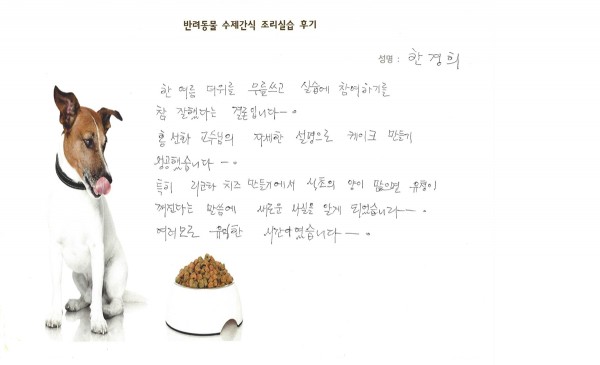 반려동물 수제간식 조리실습 후기
성명 : 한경희
한 여름 더위를 무릅쓰고 실습에 참여하기를
참 잘했다는 결론입니다ㅡ.
홍선화 교수님의 자세한 설명으로 케이크 만들기
성공했습니다ㅡ.
특히 리코타 치즈 만들기에서 식초의 양이 많으면 유청이
깨진다는 말씀에 새로운 사실을 알게 되었습니다ㅡ.
여러모로 유익한 시간이였습니다ㅡ.